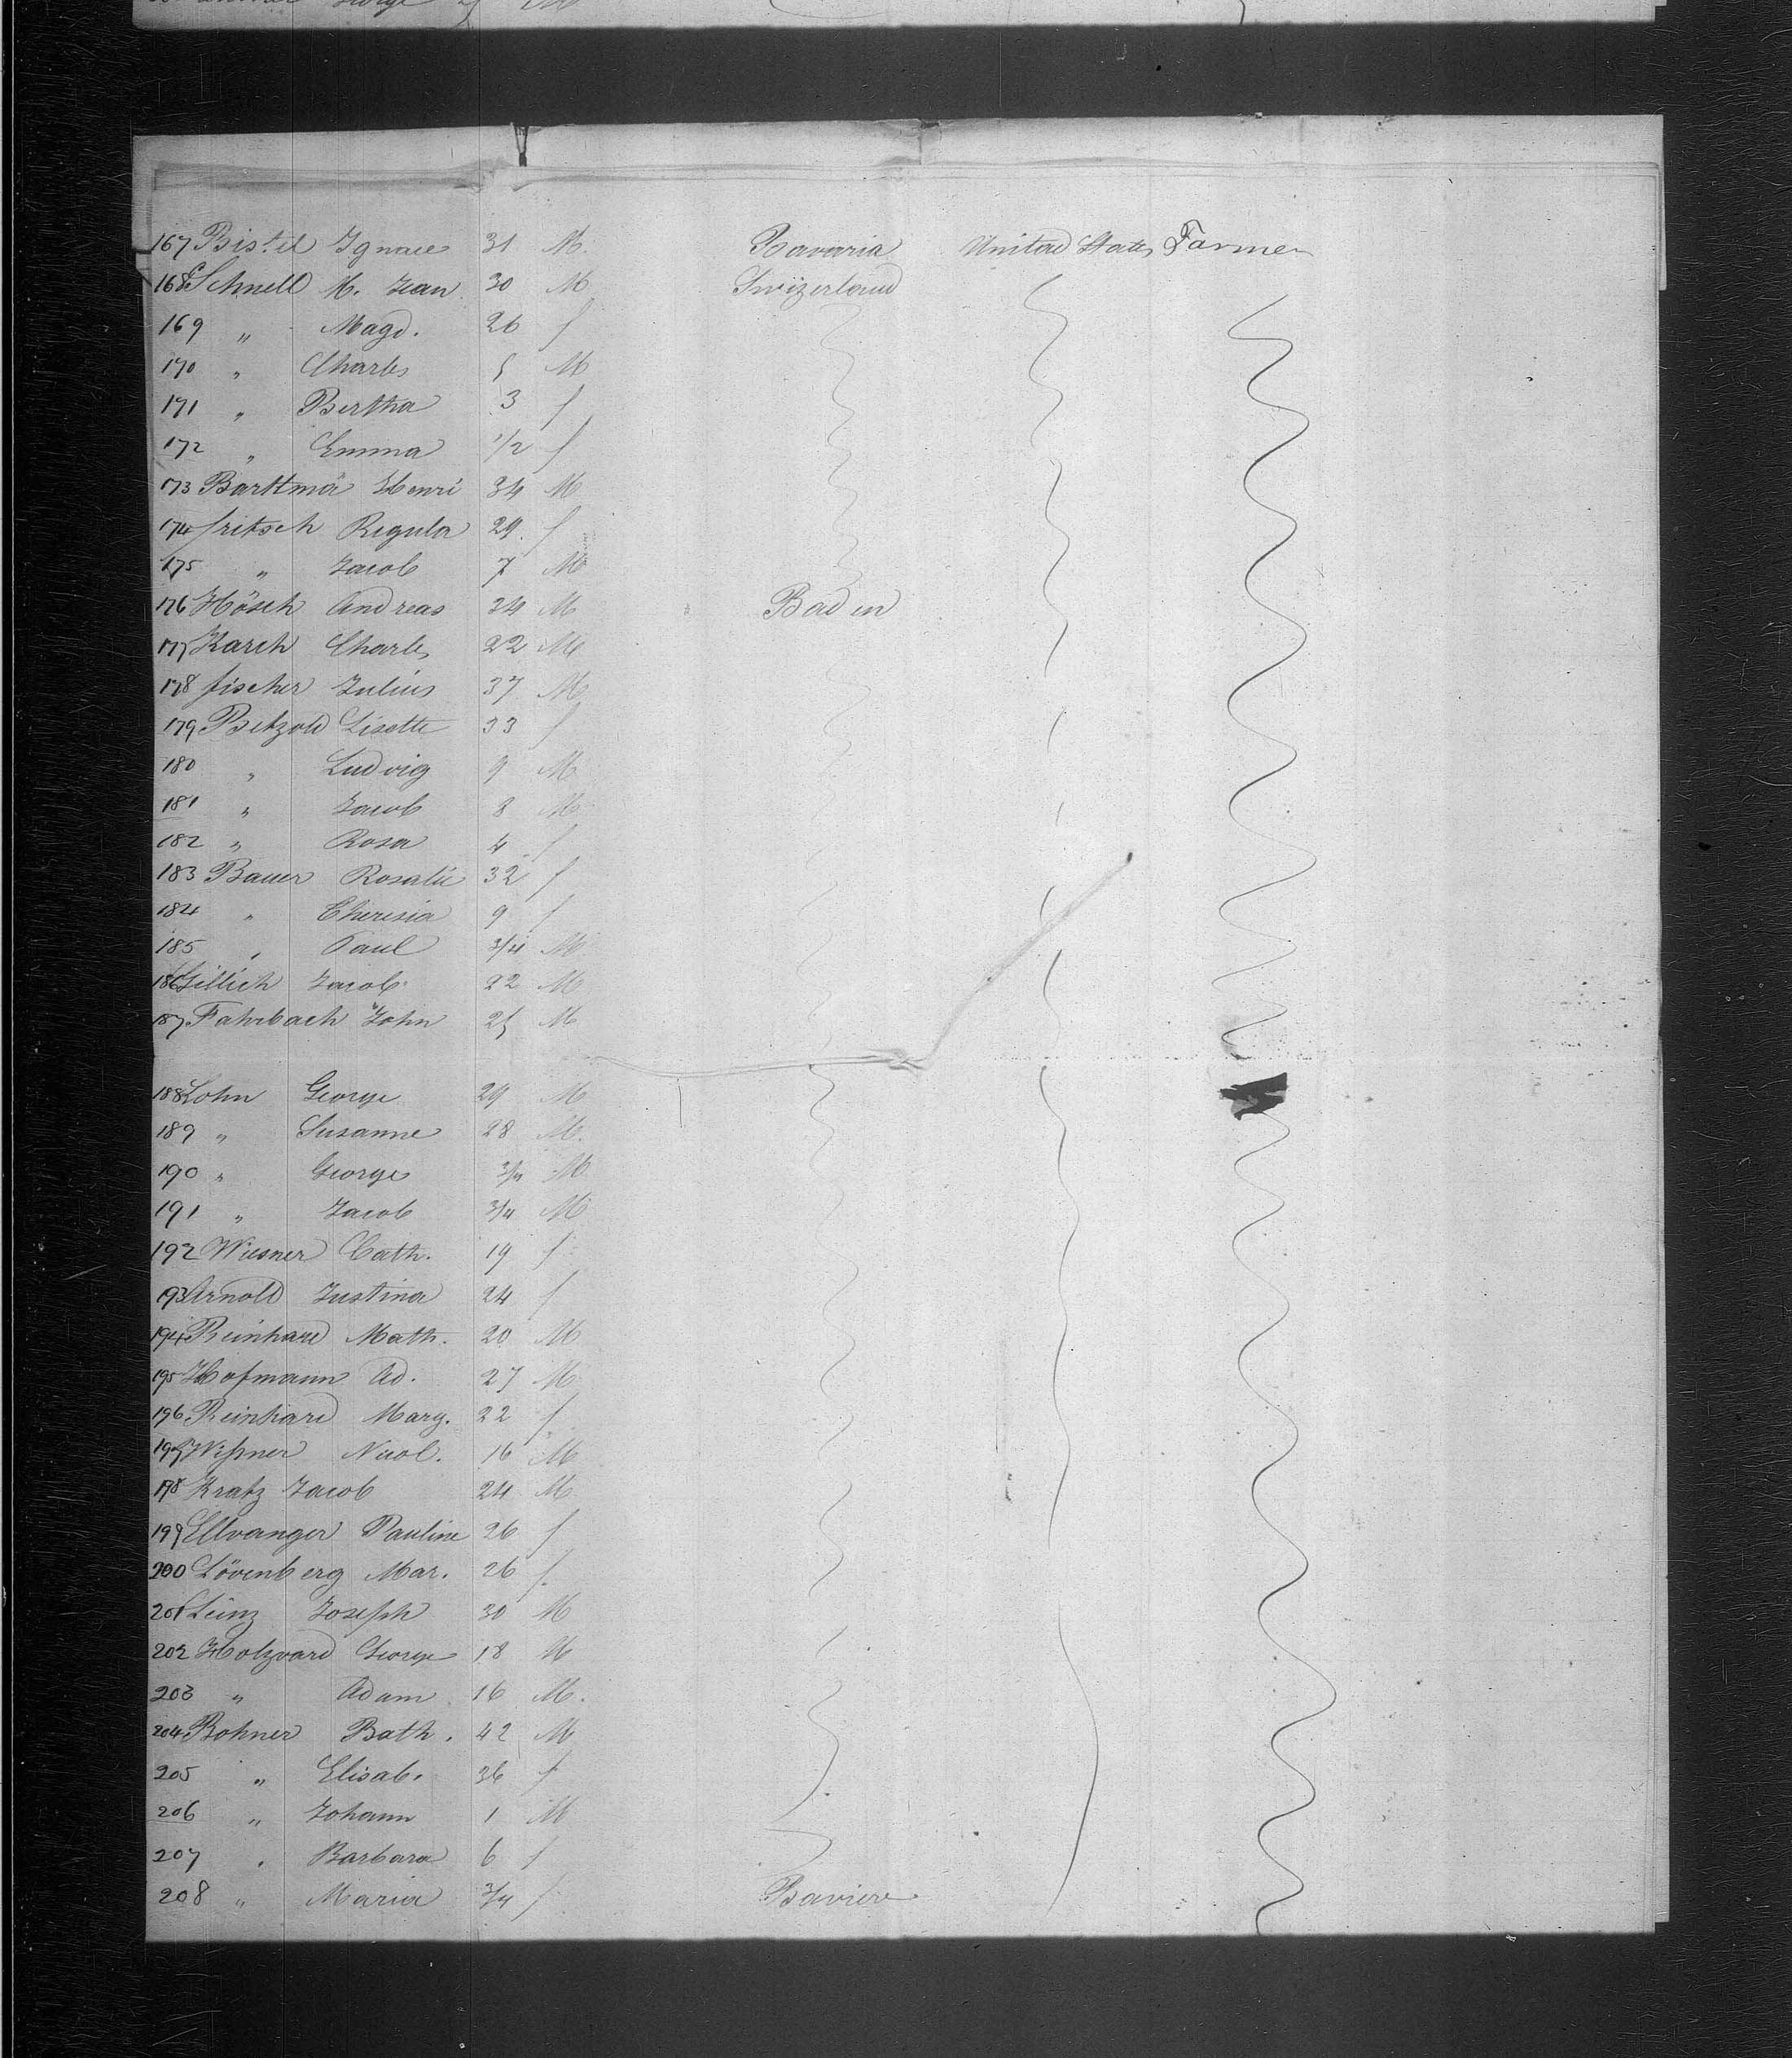 George
167 Bistel Ignace 31 M. Bavaria United States Farmer
168 Schnell M. Jean 30 M Swizerland
169 " Magd. 26 f
170 " Charles 5 M
171 " Bertha 3 f
172 " Emma 1/2 f
173 Barttmä Henri 34 M
174 fritsch Regula 29. f
175 " Jacob 7 M
176 Hösch Andreas 34 M Baden
177 Karch Charles 22 M
178 fischer Julius 37 M
179 Betzold Lisette 33 f
180 " Ludvig 9 M
181 " Jacob 8 M
182 " Rosa 4 f
183 Bauer Rosalie 32 f
184 " Theresia 9 f
185 " Paul 3/4 M
186 Gillich Jacob 22 M
187 Fahrbach John 25 M
188 Lohn George 29 M
189 " Susanne 28 M.
190 " George 3/4 M
191 " Jacob 3/4 M
192 Wiesner Cath. 19 f
193 Arnold Justina 24 f
194 Reinhard Math. 20 M
195 Hofmann Ad. 27 M
196 Reinhard Marg. 22 f
197 Wißner Nicol. 16 M
198 Kratz Jacob 24 M
199 Ellvanger Pauline 26 f
200 Lövenberg Mar. 26 f.
201 Leinz Joseph 30 M
202 Holzvard George 18 M
203 " Adam 16 M.
204 Rohner Bath. 42 M
205 " Elisab. 36 f
206 " Johann 1 M
207 " Barbara 6 f
208 " Maria 3/4 f Baviere